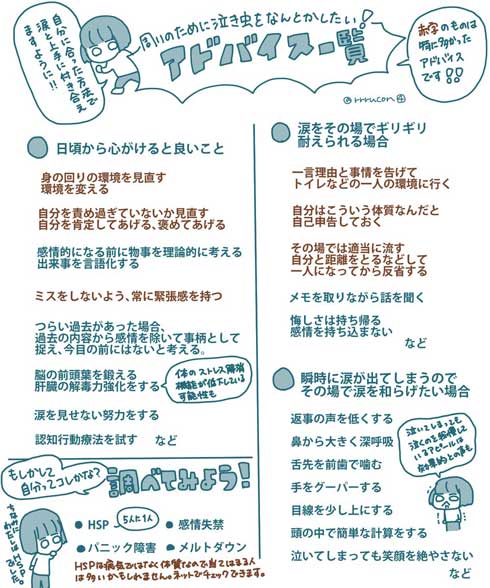 自分に合った方法で
涙と上手に付き合え
ますように!!
周りのために泣き虫をなんとかしたい!
アドバイス一覧
赤字のものは
特に多かった
アドバイス
です!!
@rrrucon
日頃から心がけると良いこと
身の回りの環境を見直す
環境を変える
自分を責め過ぎていないか見直す
自分を肯定してあげる、褒めてあげる
感情的になる前に物事を理論的に考える
出来事を言語化する
ミスをしないよう、常に緊張感を持つ
つらい過去があった場合、
過去の内容から感情を除いて事柄として
捉え、今目の前にはないと考える。
脳の前頭葉を鍛える
肝臓の解毒力強化をする
体のストレス解消
機能が低下している
可能性も
涙を見せない努力をする
認知行動療法を試す など
もしかして
自分ってコレかな?
調べてみよう!
HSP
5人に1人
感情失禁
パニック障害
メルトダウン
HSPは病気ではなく体質なので当てはまる人
は多いかもしれません。ネットでチェックできます。
ちなみにかくいう
わたしもHSPでした。
涙をその場でギリギリ
耐えられる場合
一言理由と事情を告げて
トイレなどの一人の環境に行く
自分はこういう体質なんだと
自己申告しておく
その場では適当に流す
自分と距離をとるなどして
一人になってから反省する
メモを取りながら話を聞く
悔しさは持ち帰る
感情を持ち込まない
など
瞬時に涙が出てしまうので
その場で涙を和らげたい場合
返事の声を低くする
鼻から大きく深呼吸
舌先を前歯で噛む
手をグーパーする
目線を少し上にする
頭の中で簡単な計算をする
泣いてしまっても笑顔を絶やさない
など
泣いてしまっても
泣くのを我慢して
いるアピールは
効果的との事も